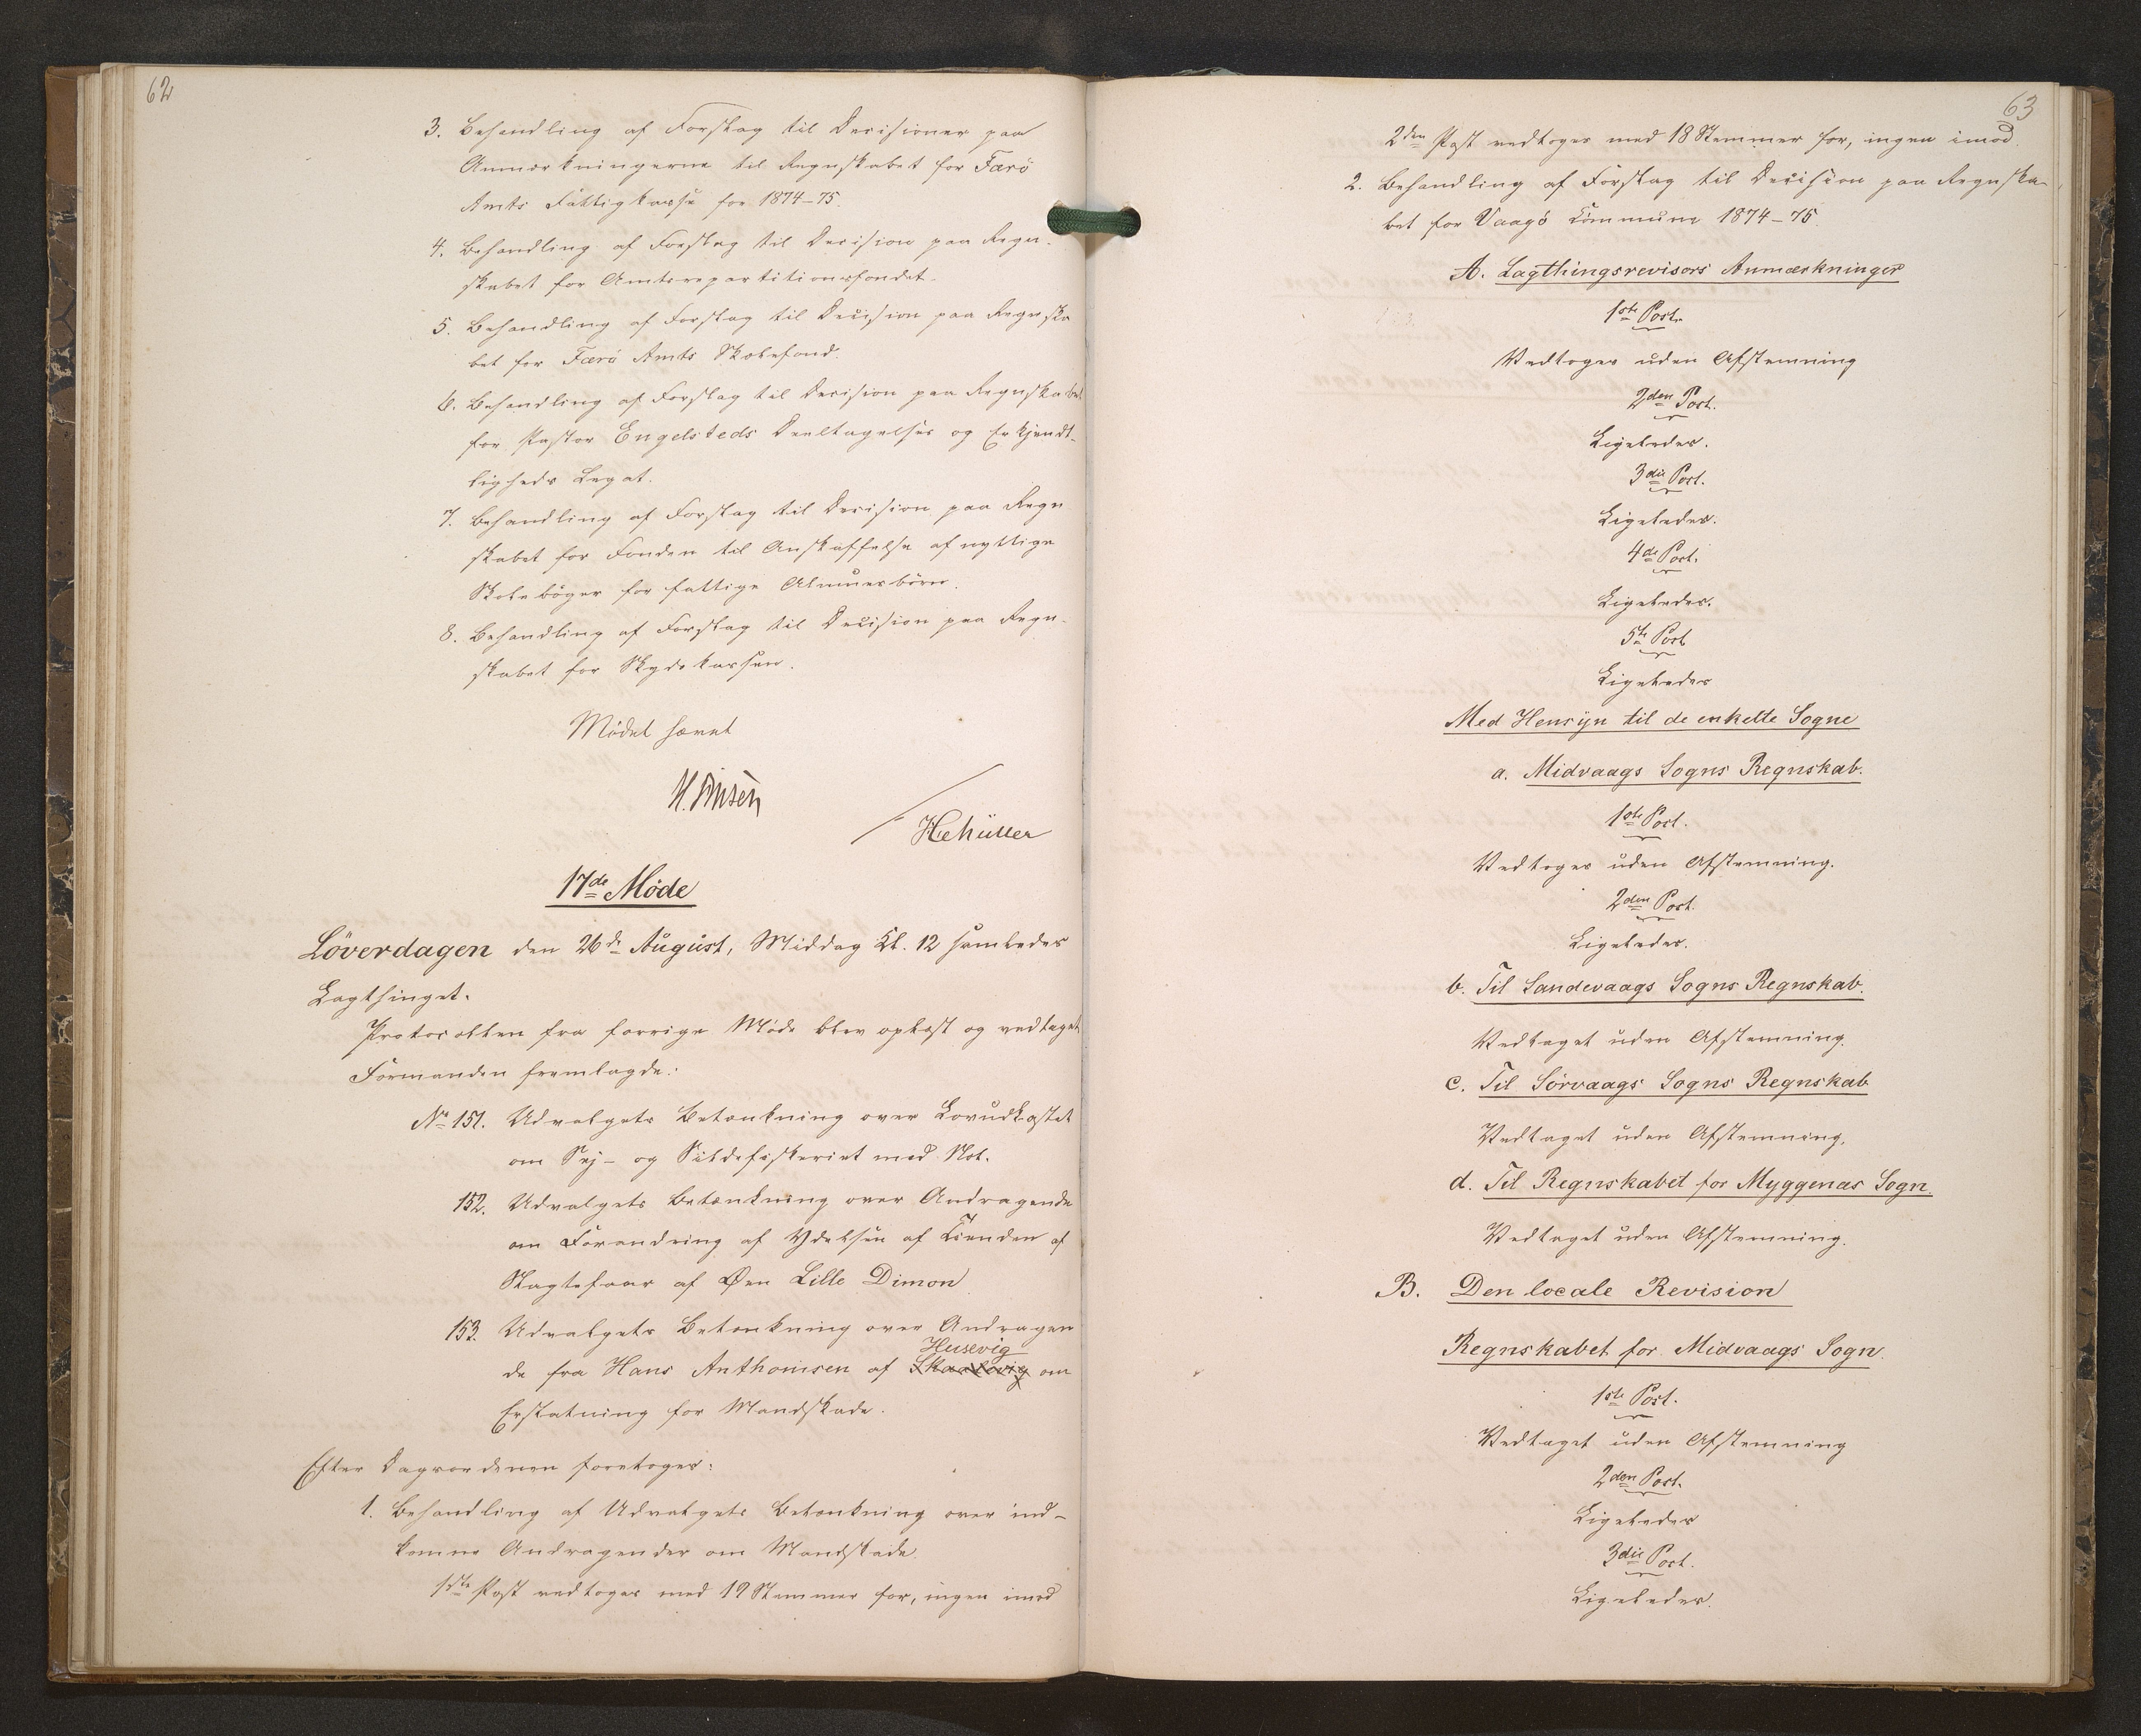 62
3. Behandling af Forslag til Decisioner paa
Anmærkningerne til Regnskabet for Færö
Amts Fattigkasse for 1874-75.
4. Behandling af Forslag til Decision paa Regn-
skabet for Amtsrepartitionsfondet.
5. Behandling af Forslag til Decision paa Regnska
bet for Færö Amts Skolefond.
6. Behandling af Forslag til Decision paa Regnskabet
for Pastor Engelsteds Deeltagelses og Erkjendt-
ligheds Legat.
7. Behandling af Forslag til Decision paa Regn
skabet for Fonden til Anskaffelse af nyttige
Skolebøger for fattige Almuesbörn.
8. Behandling af Forslag til Decision paa Regn-
skabet for Skydskassen.
Mødet hævet
H. Finsen
HcMüller
17de Møde
Löverdagen den 26de August, Middag Kl. 12 samledes
Lagthinget.
Protocollen fra forrige Møde blev oplæst og vedtaget
Formanden fremlagde:
No 151. Udvalgets Betænkning over Lovudkastet
om Sej- og Sildefiskeriet med Not.
152. Udvalgets Betænkning over Andragende
om Forandring af Ydelsen af Tienden af
Slagtefaar af Øen Lille Dimon
153. Udvalgets Betænkning over Andragen
Husevig
de fra Hans Anthonisen af Skaalevig om
Erstatning for Mandskade.
Efter Dagsordenen foretoges:
1. Behandling af Udvalgets Betænkning over ind-
komne Andragender om Mandskade
1ste Post vedtoges med 19 Stemmer for, ingen imod
63
2den Post vedtoges med 18 Stemmer for, ingen imod.
2. Behandling af Forslag til Decision paa Regnska-
bet for Vaagö Commune 1874-75.
A. Lagthingsrevisors Anmærkninger
1ste Post.
Vedtoges uden Afstemning
2den Post.
Ligeledes.
3die Post.
Ligeledes.
4de Post.
Ligeledes.
5te Post
Ligeledes
Med Hensyn til de enkelte Sogne
a. Midvaags Sogns Regnskab.
1ste Post.
Vedtoges uden Afstemning.
2den Post.
Ligeledes.
b. Til Sandevaags Sogns Regnskab.
Vedtaget uden Afstemning.
c. Til Sörvaags Sogns Regnskab
Vedtaget uden Afstemning.
d. Til Regnskabet for Myggenæs Sogn.
Vedtaget uden Afstemning.
B. Den locale Revision
Regnskabet for Midvaags Sogn.
1ste Post.
Vedtaget uden Afstemning
2den Post.
Ligeledes
3die Post.
Ligeledes.